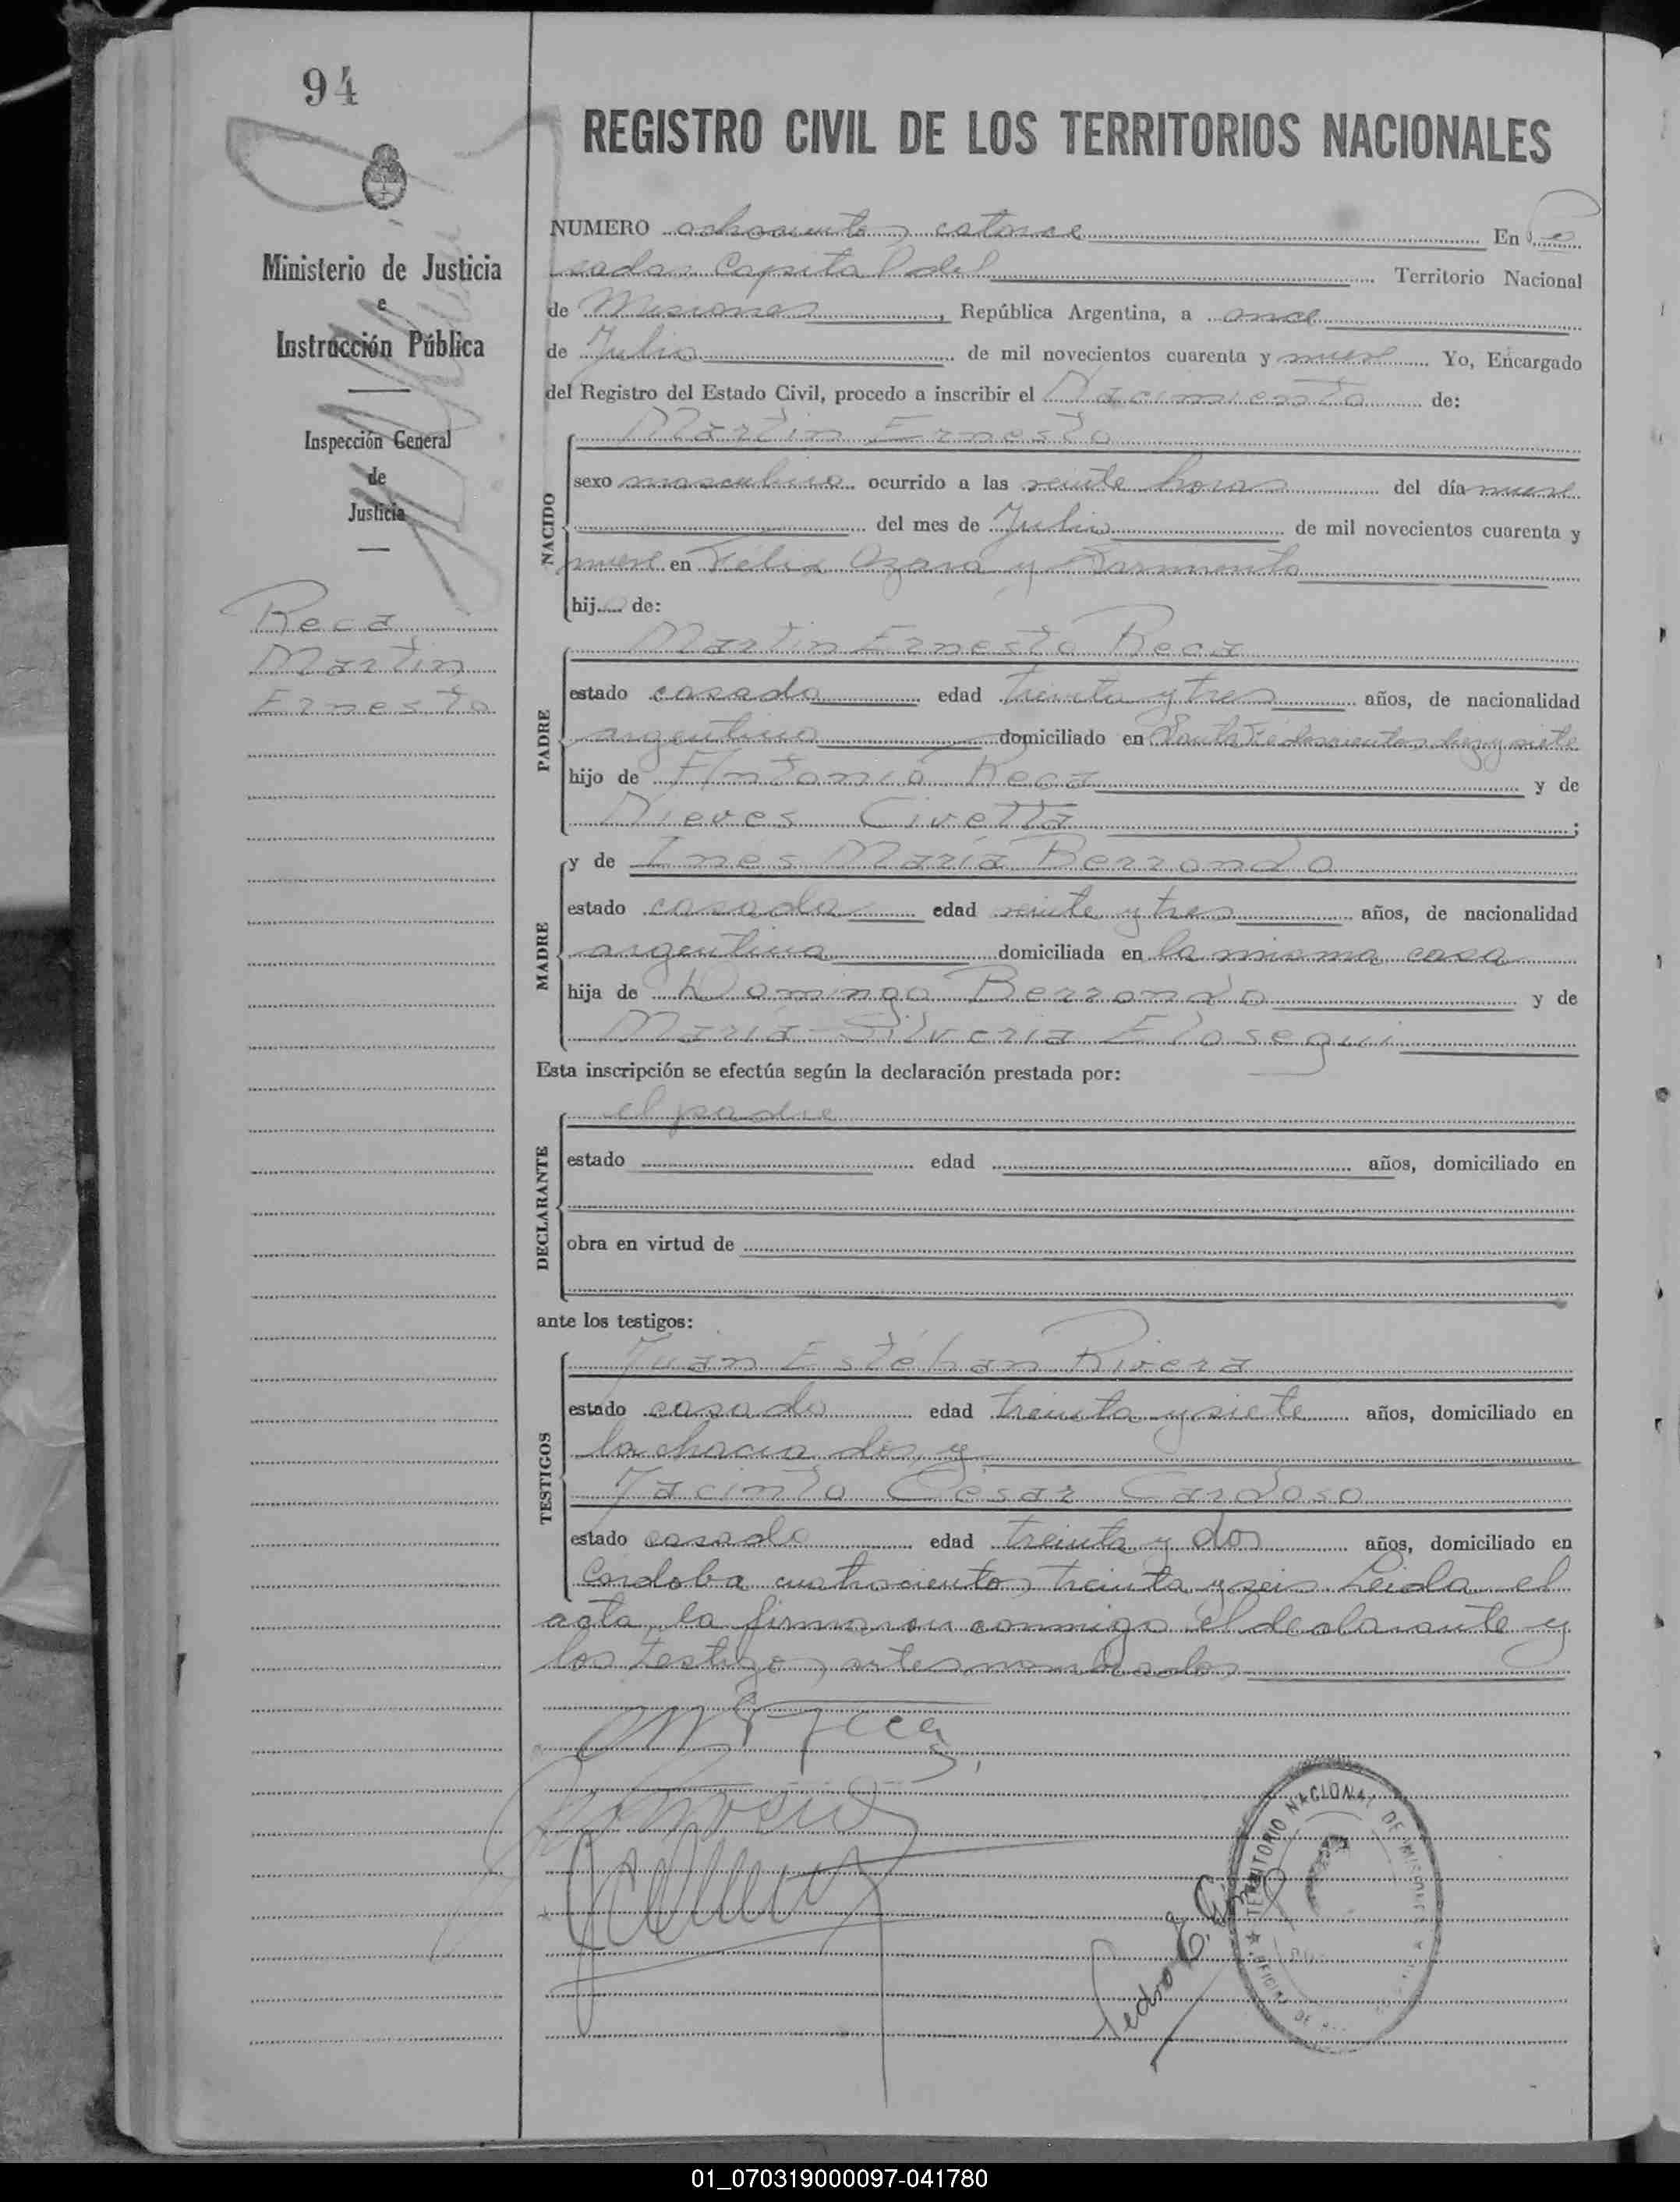 94
REGISTRO CIVIL DE LOS TERRITORIOS NACIONALES
Ministerio de Justicia
e
Instrucción Pública
Inspección General
de
Justicia
Reca
Martin
Ernesto
NUMERO ochocientos catorce En Po
sadas Capital del Territorio Nacional
de Misiones, República Argentina, a once
de Julio de mil novecientos cuarenta y nueve Yo, Encargado
del Registro del Estado Civil, procedo a inscribir el Nacimiento de:
NACIDO
Martin Ernesto
sexo masculino ocurrido a las veinte horas del día nueve
del mes de Julio de mil novecientos cuarenta y
nueve en Félix Azara y Sarmiento
hijo de:
PADRE
Martin Ernesto Reca
estado casado edad treinta y tres años, de nacionalidad
argentino domiciliado en Santa Fé doscientos diez y siete
hijo de Antonio Reca y de
Nieves Civetta;
MADRE
y de Inés María Berrondo
estado casada edad veinte y tres años, de nacionalidad
argentina domiciliada en la misma casa
hija de Domingo Berrondo y de
María Silveria Elosegui
Esta inscripción se efectúa según la declaración prestada por:
DECLARANTE
el padre
estado edad años, domiciliado en
obra en virtud de
ante los testigos:
TESTIGOS
Juan Estéban Rivera
estado casado edad treinta y siete años, domiciliado en
la chacra dos, y
Jacinto César Cardoso
estado casado edad treinta y dos años, domiciliado en
Córdoba cuatrocientos treinta y seis. Leida el
acta, la firmaron conmigo el declarante y
los testigos antesnombrados
Pedro E.
TERRITORIO NACIONAL DE MISIONES
01_070319000097-041780